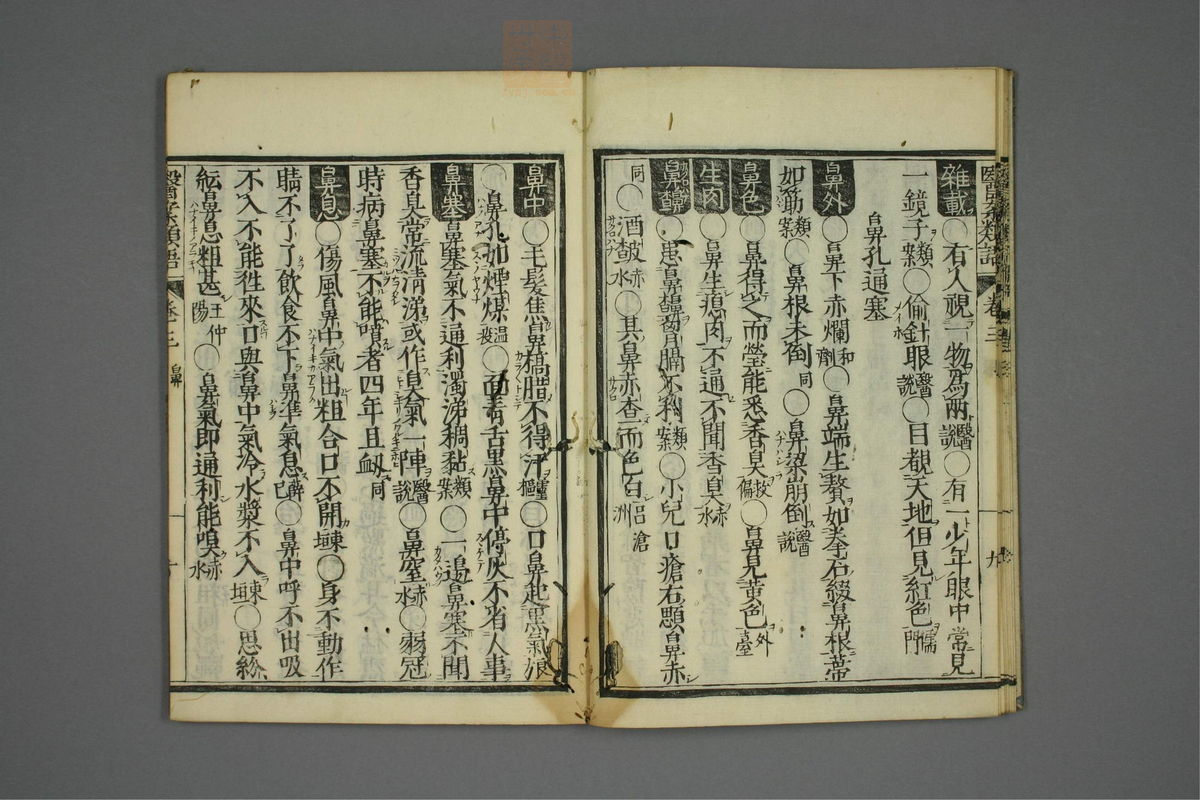 雜載○有人視一物爲兩醫說○有一少年眼中常見
一鏡子類案○偷針眼醫說○目覩天地但見紅色儒門
鼻孔通塞
鼻外○鼻下赤爛和劑○鼻端生贅如拳石綴鼻根蔕
如筯類案○鼻根未倒同○鼻梁崩倒醫說
鼻色○鼻得之而瑩能悉香臭○鼻見黃色外臺
生肉○鼻生瘜肉不通不聞香臭赤水
鼻齇○患鼻齇胷膈不利類案○小兒口瘡右顋鼻赤
同○酒皶赤水○其鼻赤查而色白呂滄洲
醫案類語 卷三 鼻
鼻中○毛髮焦鼻槁腊不得汗靈樞○口鼻起黑氣
○鼻孔如煙煤溫疫○面青舌黑鼻中停灰不省人事
鼻塞○鼻塞氣不通利濁涕稠黏類案○一邊鼻塞不聞
香臭常流淸涕或作臭氣一陣醫說○鼻窒赤水○弱冠
時病鼻塞不能噴者四年且衂同
鼻息○傷風鼻中氣出粗合口不開東垣○身不動作
睛不了了飲食不下鼻準氣息薜己○鼻中呼不出吸
不入不能徃來口與鼻中氣冷水漿不入東垣○思紛
紜鼻息粗甚王仲陽○鼻氣即通利能嗅赤水